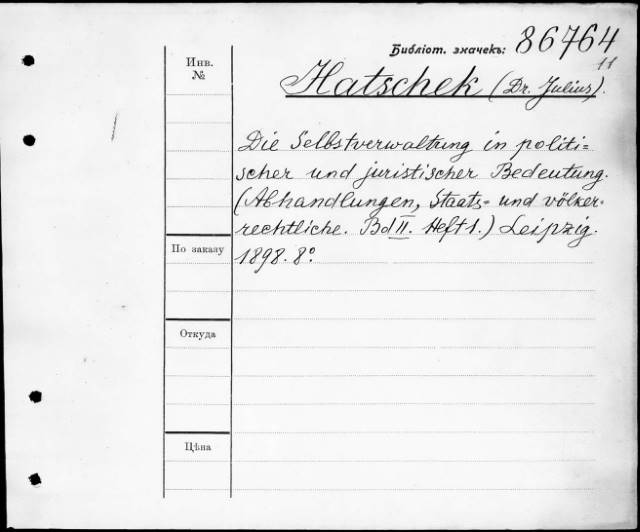 Библіот. значекъ: 86764
11
Инв.
№
Hatschek (Dr. Julius).
Die Selbstverwaltung in politi=
scher und juristischer Bedeutung.
(Abhandlungen, Staats= und völker-
rechtliche. Bd II. Heft 1.) Leipzig.
1898. 8º
По заказу
Откуда
Цѣна